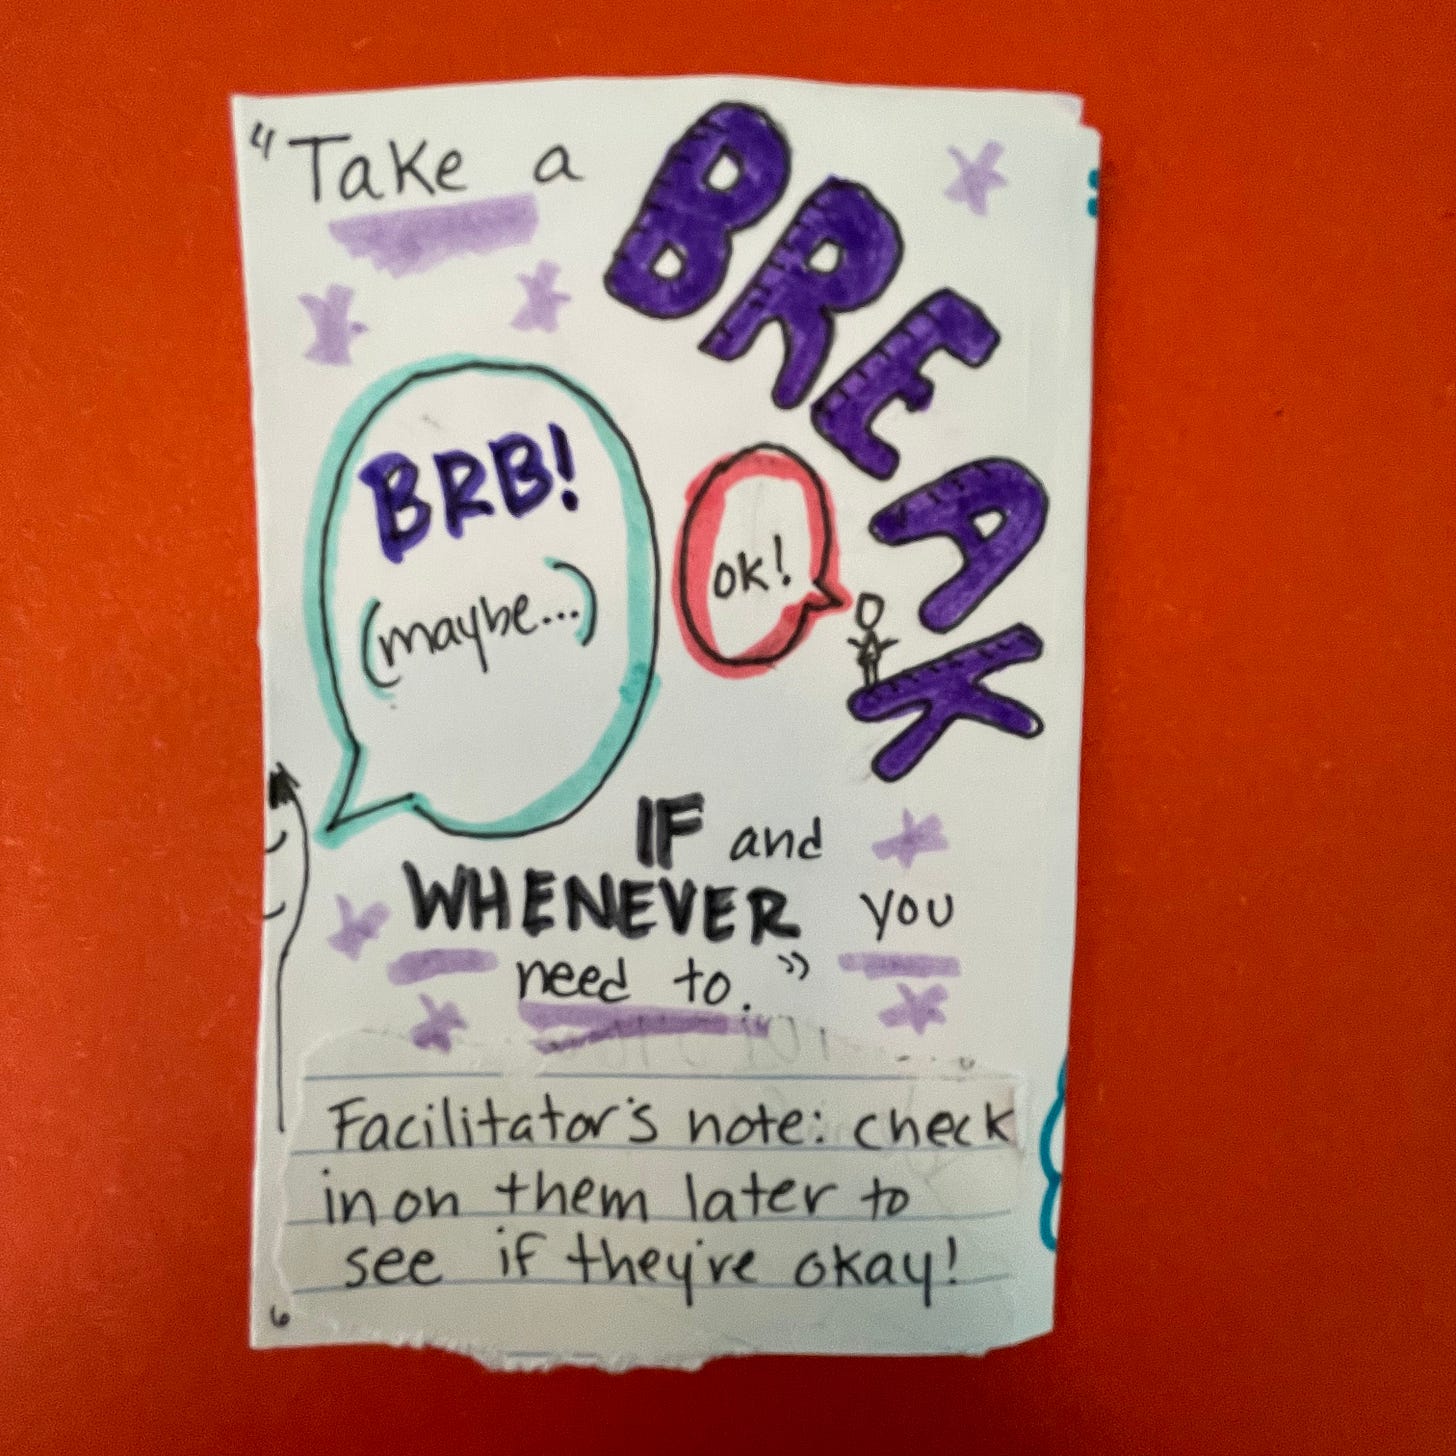 "Take a BREAK
BRB!
(maybe...)
ok!
IF and
WHENEVER you
need to."
Facilitator's note: check
in on them later to
see if they're okay!
6